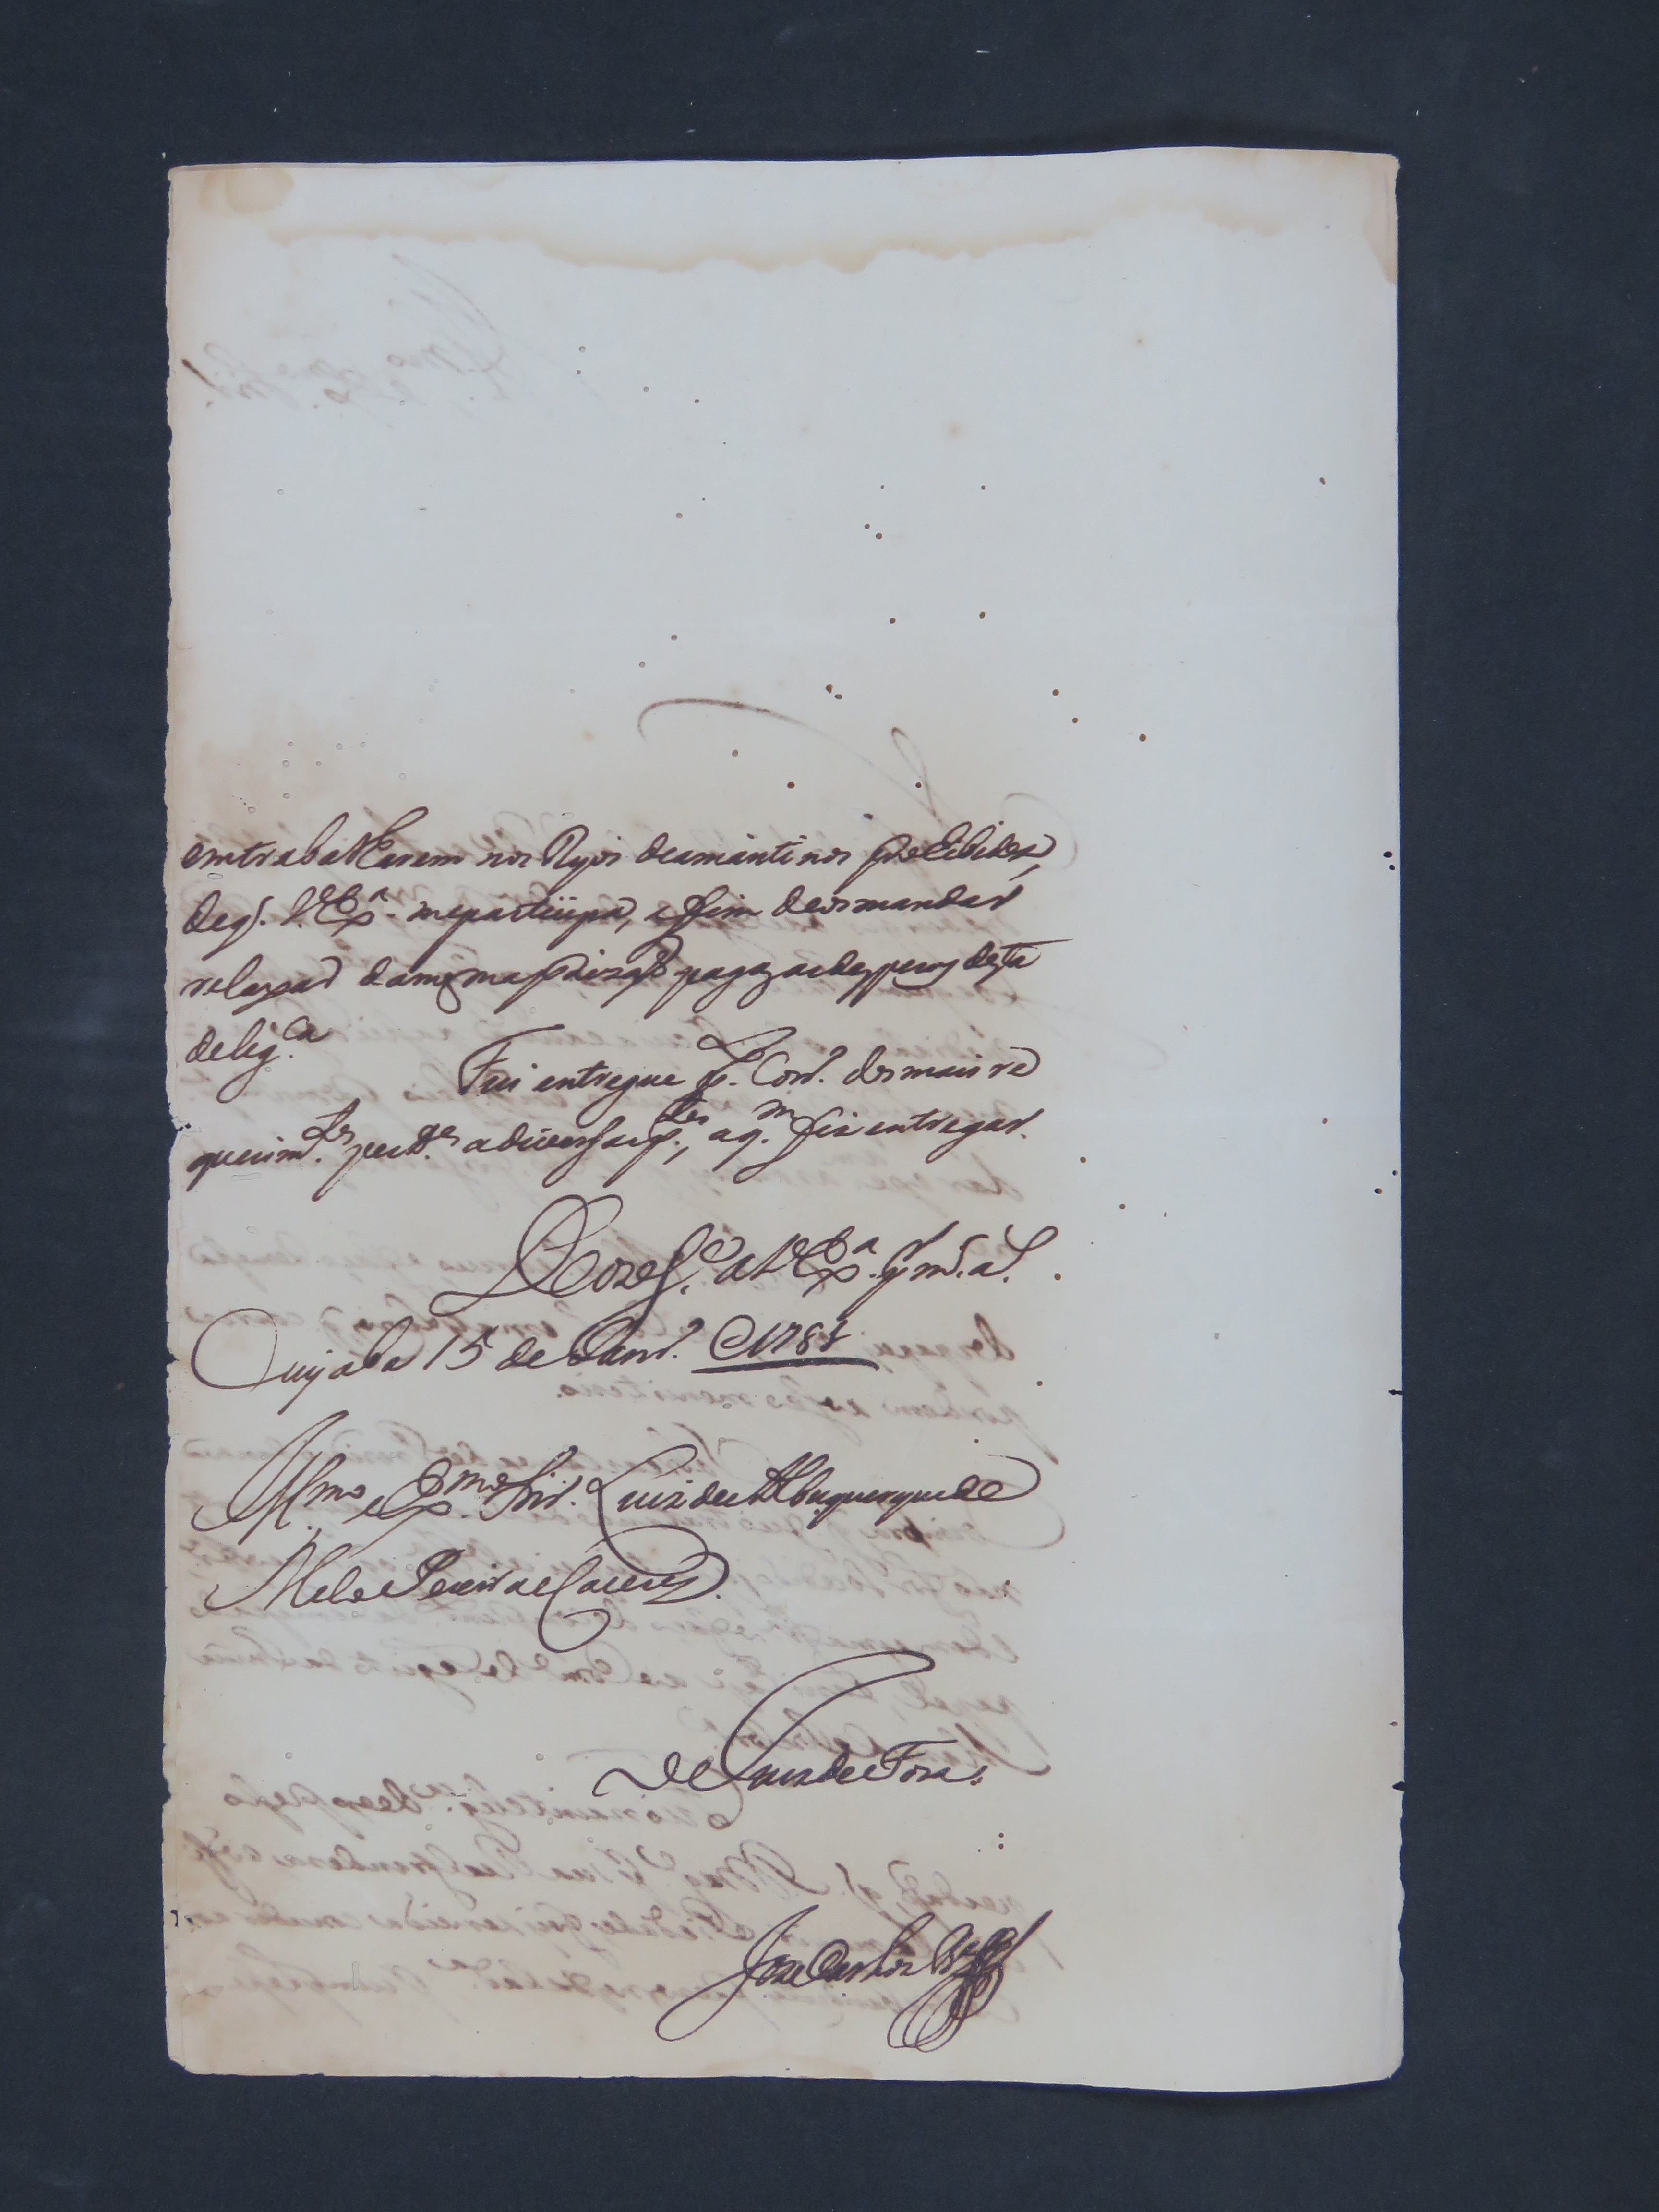 emtrabalharam nos Ryos deamantinos prohibidos,
deq'. V.Exª. meparticipa, afim deosmandar
relaxar damesmaprizaõ pagaz asdespezas desta
delig.ª
Fui entregue p. Cor.º dos mais re
querim.tos a diversas p.tes, aq.m fiz entregar.
Deos g.e a V.Exª. m.s a.s
Cuyaba 15 de Janr.º 178
Ill.mo e Ex.mo Snr. Luiz de Albuquerque de
Melo Pereira e Caceres.
De Juiz de Fora.
Joze Carlos Prª